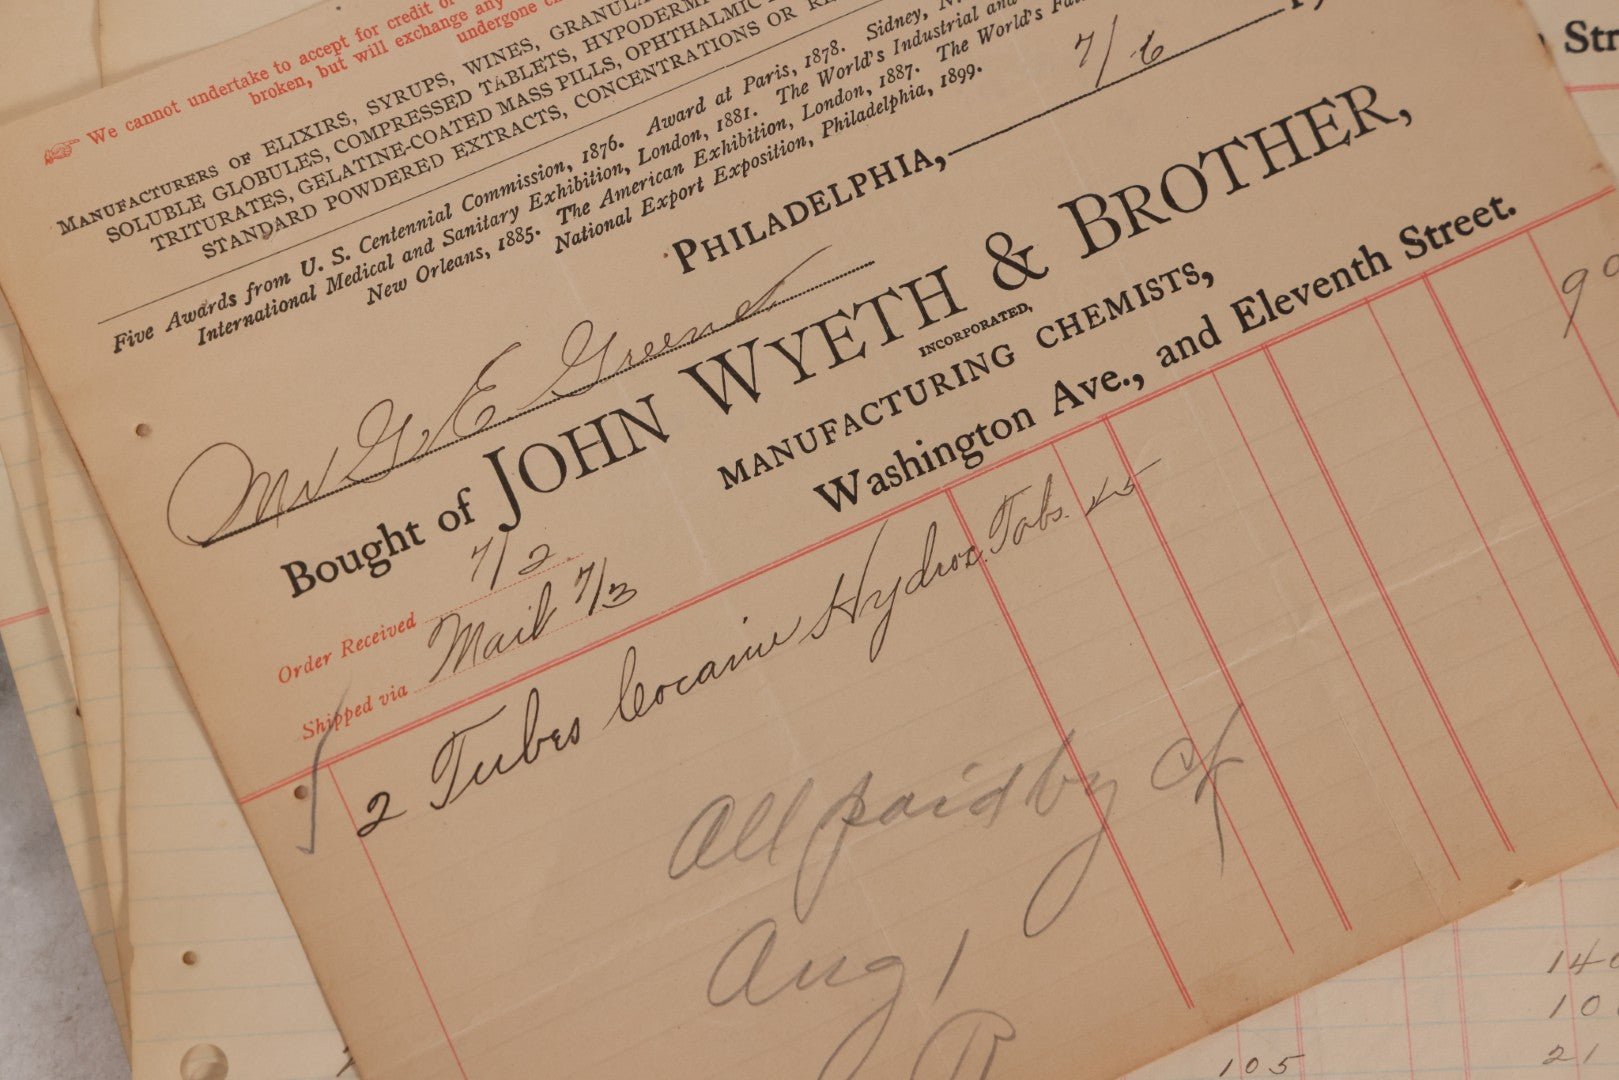 We cannot undertake to accept for credit or
broken, but will exchange any
undergone
MANUFACTURERS OF ELIXIRS, SYRUPS, WINES,
SOLUBLE GLOBULES, COMPRESSED TABLETS,
TRITURATES, GELATINE-COATED MASS PILLS, OPHTHALMIC
STANDARD POWDERED EXTRACTS, CONCENTRATIONS OR
Five Awards from U. S. Centennial Commission, 1876. Award at Paris, 1878. Sidney,
International Medical and Sanitary Exhibition, London, 1881. The World's Industrial and
New Orleans, 1885. The American Exhibition, London, 1887. The World's
National Export Exposition, Philadelphia, 1899.
PHILADELPHIA, 7/6
G. E. Greene
Bought of JOHN WYETH & BROTHER,
INCORPORATED,
MANUFACTURING CHEMISTS,
Washington Ave., and Eleventh Street.
Order Received 7/2
Shipped via Mail 7/3
2 Tubes Cocaine Hydroc. Tabs 45
90
All paid by ck
Aug 1
105
140
10
21